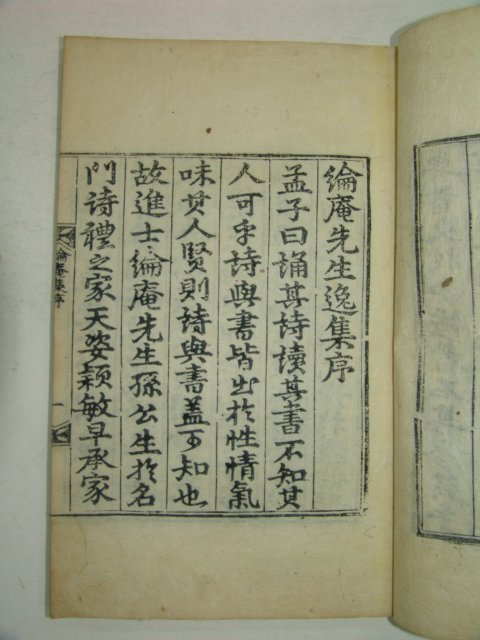 綸庵先生逸集序
孟子曰誦其詩讀其書不知其
人可乎詩與書皆出於性情氣
味其人賢則詩與書盖可知也
故進士綸庵先生孫公生於名
門詩禮之家天姿穎敏早承家
綸庵集序
一